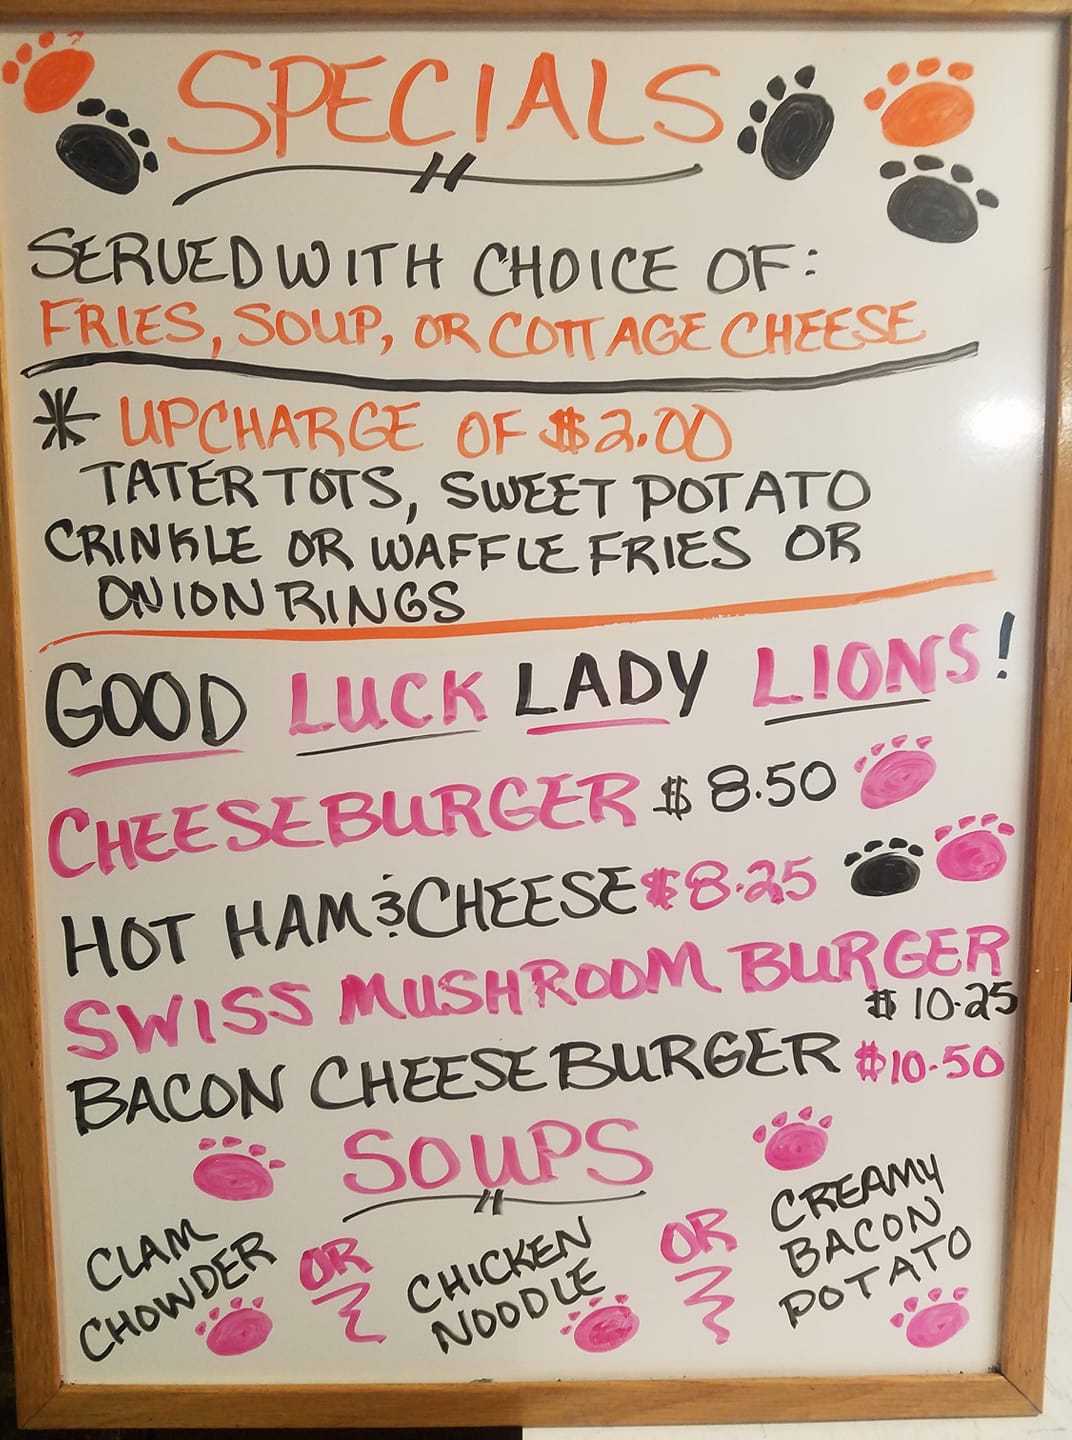 SPECIALS
SERVED WITH CHOICE OF:
FRIES, SOUP, OR COTTAGE CHEESE
* UPCHARGE OF $2.00
TATER TOTS, SWEET POTATO
CRINKLE OR WAFFLE FRIES OR
ONION RINGS
GOOD LUCK LADY LIONS!
CHEESEBURGER $8.50
HOT HAM & CHEESE $8.25
SWISS MUSHROOM BURGER
$10.25
BACON CHEESEBURGER $10.50
SOUPS
CLAM
CHOWDER
OR
CHICKEN
NOODLE
OR
CREAMY
BACON
POTATO